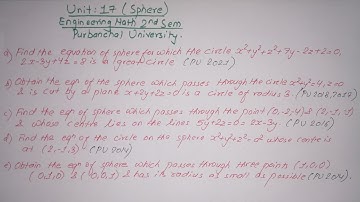 Unit: 17 (Sphere)
Engineering Math 2nd Sem
Purbanchal University.
a) Find the equation of sphere for which the circle x²+y²+z²+7y-2z+2=0,
2x+3y+4z=8 is a great circle (PU 2021)
b) Obtain the eqn of the sphere which passes through the circle x²+y²=4, z=0
& is cut by a plane x+2y+2z=0 is a circle of radius 3. (PU 2018, 2018)
c) Find the eqn of sphere which passes through the point (0,-2,4) & (2,-1,-1)
& whose centre lies on the lines 5y+2z=0=2x-3y. (PU 2016)
d) Find the eqn of the circle on the sphere x²+y²+z²=a² whose centre is
at (2,-1,3) (PU 2014)
e) Obtain the eqn of sphere which passes through three points (1,0,0)
(0,1,0) & (0,0,1) & has its radius as small as possible (PU 2014).